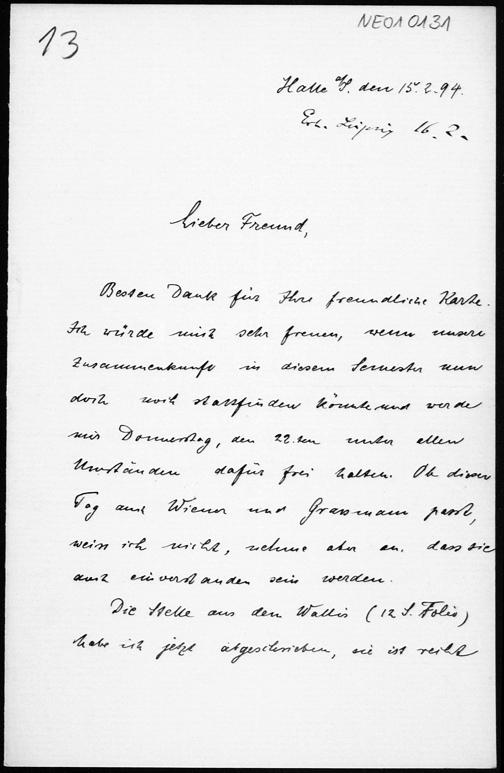 NEO10131
13
Halle a/S. den 15.2.94.
Erh. Leipzig 16.2.
Lieber Freund,
Besten Dank für Ihre freundliche Karte.
Ich würde mich sehr freuen, wenn unsere
Zusammenkunft in diesem Semester nun
doch noch stattfinden könnte und werde
mir Donnerstag, den 22.ten unter allen
Umständen dafür frei halten. Ob dieser
Tag auch Wiener und Grassmann passt,
weiss ich nicht, nehme aber an, dass sie
damit einverstanden sein werden.
Die Stelle aus den Wallis (12 S. Folio)
habe ich jetzt abgeschrieben, sie ist recht